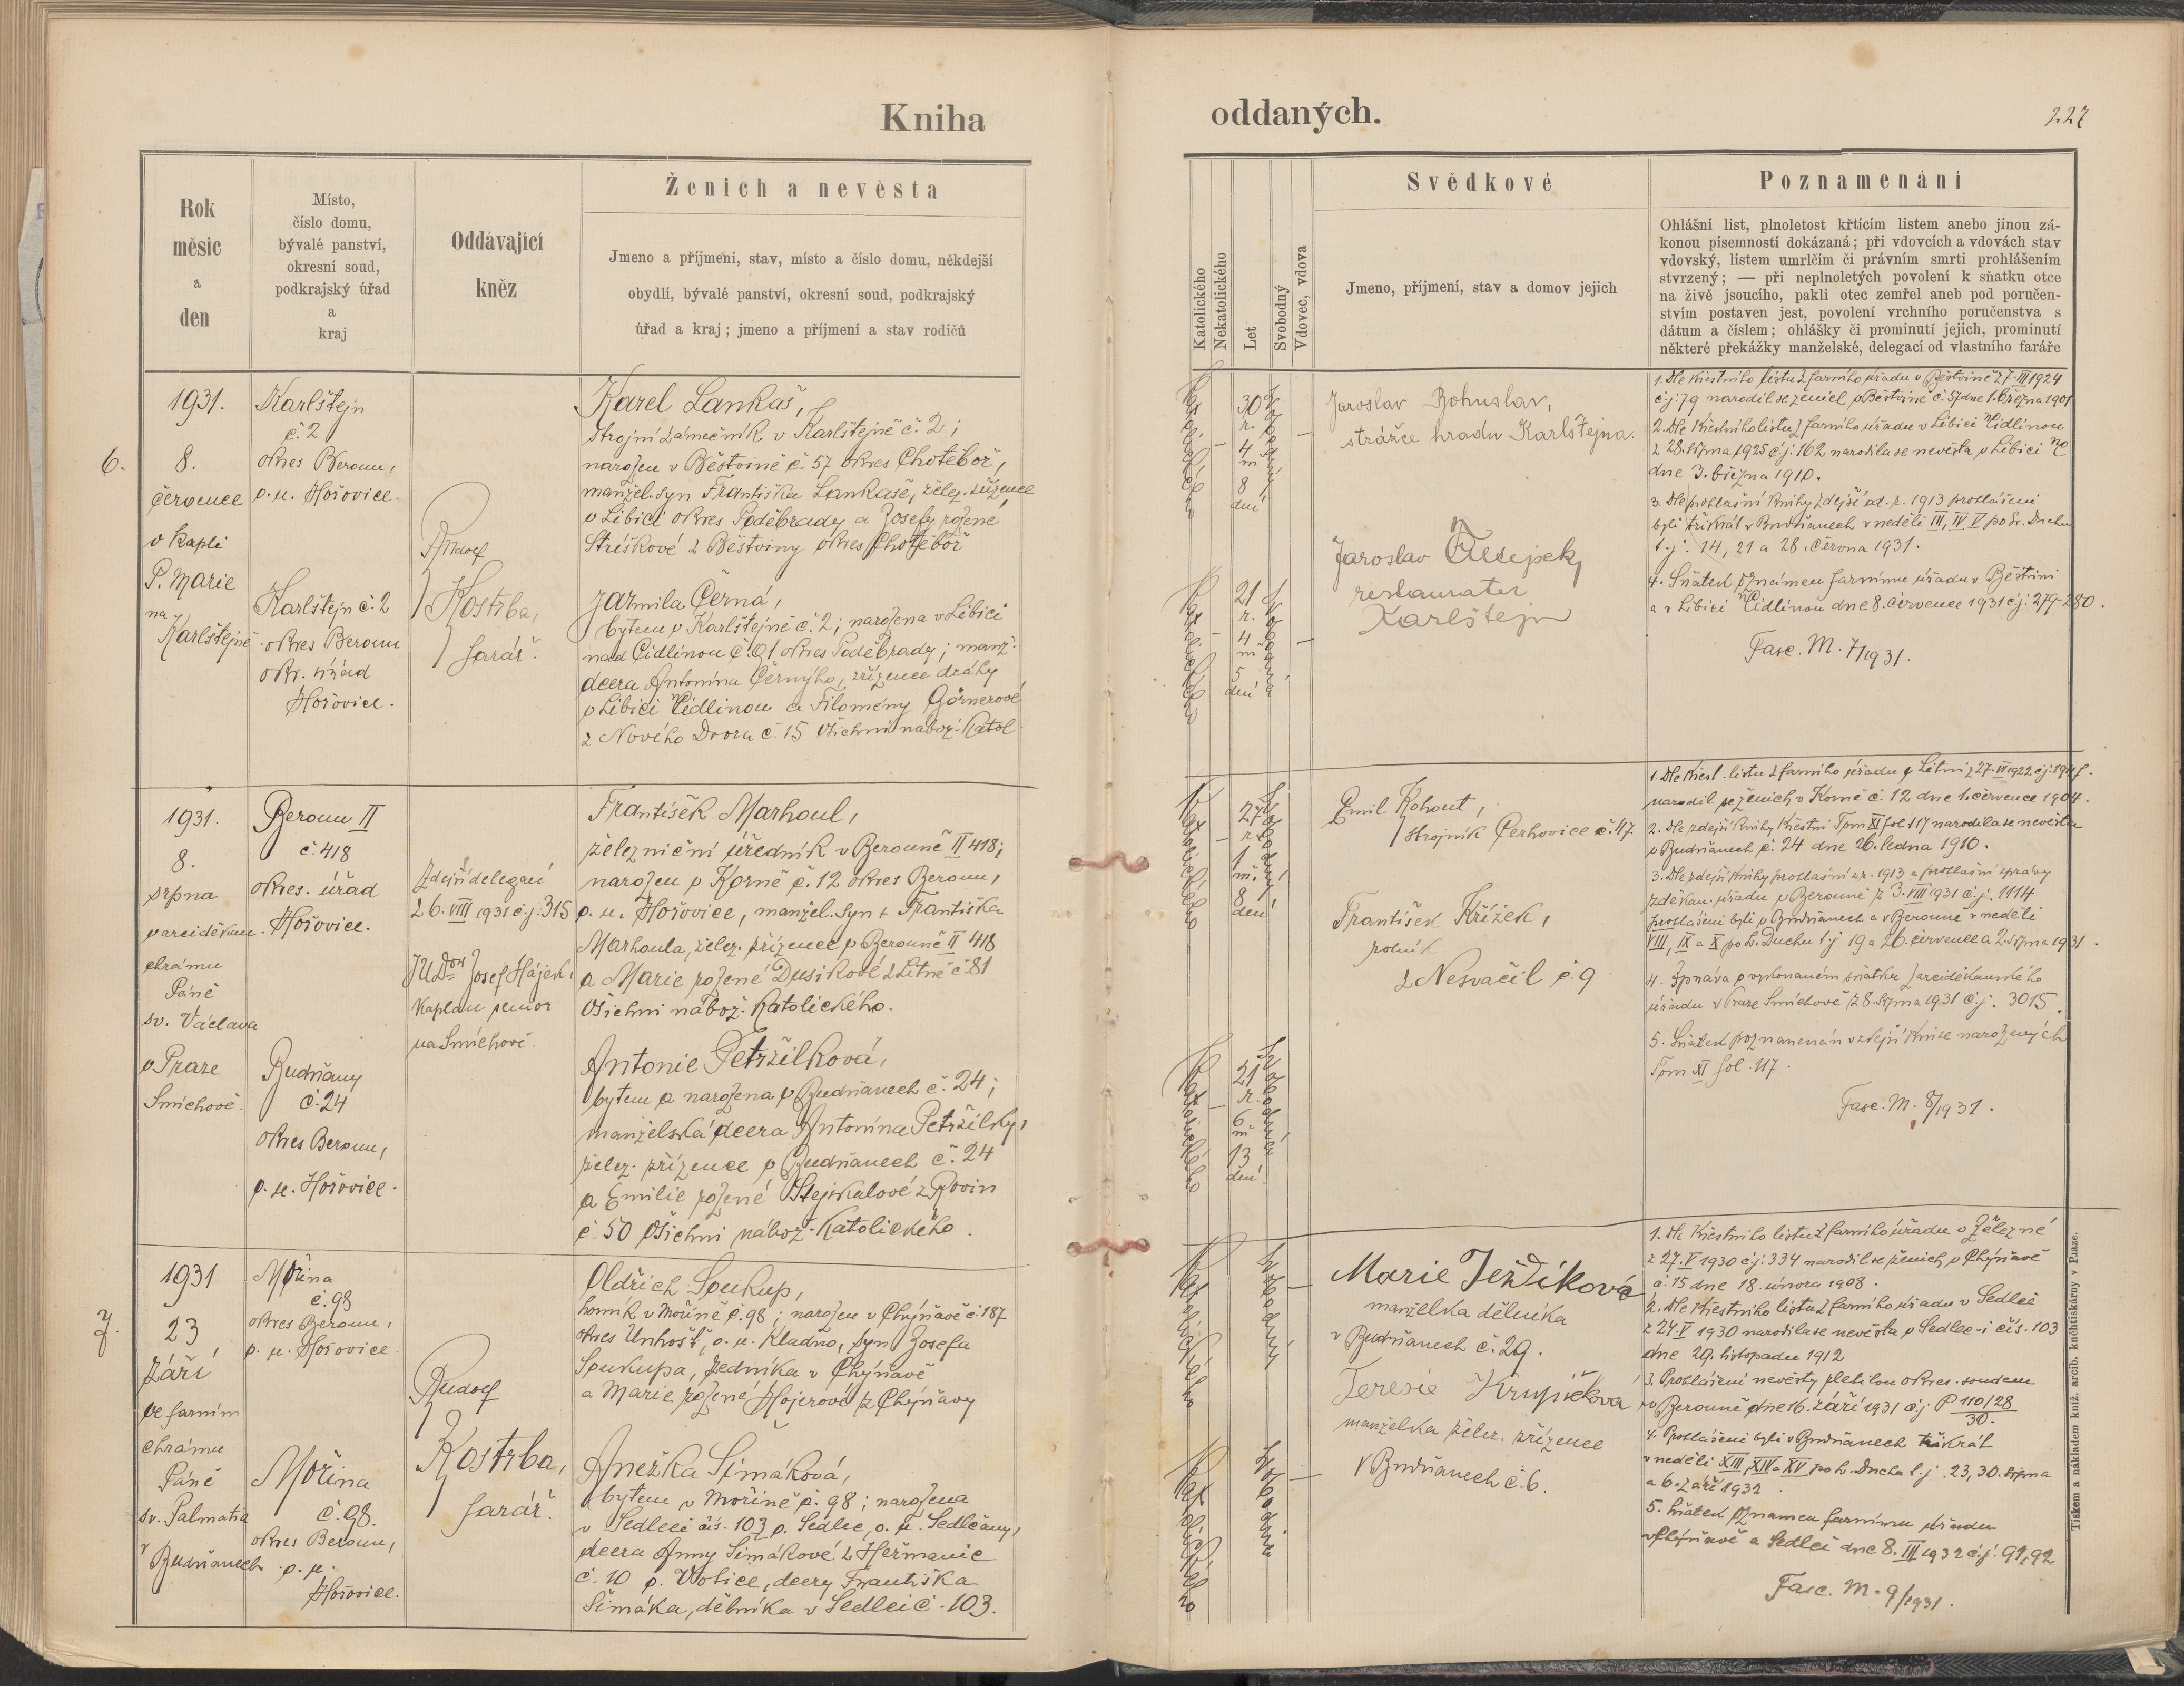 Kniha
oddaných.
227
Rok
měsíc
a
den
Místo,
číslo domu,
bývalé panství,
okresní soud,
podkrajský úřad
a
kraj
Oddávající
kněz
Ženich a nevěsta
Jmeno a příjmení, stav, místo a číslo domu, někdejší
obydlí, bývalé panství, okresní soud, podkrajský
úřad a kraj; jmeno a příjmení a stav rodičů
Katolického
Nekatolického
Let
Svobodný
Vdovec, vdova
Svědkové
Jmeno, příjmení, stav a domov jejich
Poznamenání
Ohlášní list, plnoletost křtícím listem anebo jinou zá-
konou písemností dokázaná; při vdovcích a vdovách stav
vdovský, listem umrlčím či právním smrti prohlášením
stvrzený; — při neplnoletých povolení k sňatku otce
na živě jsoucího, pakli otec zemřel aneb pod poručen-
stvím postaven jest, povolení vrchního poručenstva s
dátum a číslem; ohlášky či prominutí jejich, prominutí
některé překážky manželské, delegací od vlastního faráře
6.
1931.
8.
července
v kapli
P. Marie
na
Karlštejně
Karlštejn
č. 2
okres Beroun,
p. ú. Hořovice.
Karlštejn č. 2
okres Beroun
okr. úřad
Hořovice.
Rudolf
Kostrba,
farář.
Karel Lankaš,
strojní zámečník v Karlštejně č. 2;
narozen v Běstvině č. 57 okres Chotěboř,
manžel. syn Františka Lankaše, želez. zřízence
v Libici okres Poděbrady a Josefy rozené
Stríškové z Běstviny okres Chotěboř
Jarmila Černá,
bytem v Karlštejně č. 2; narozena v Libici
nad Cidlinou č. 91 okres Poděbrady; manž.
dcera Antonína Černýho, zřízence dráhy
v Libici n Cidlinou a Filomény Görnerové
z Nového Dvora č. 15 všichni nábož. katol.
Katolického
30
r.
4
m
8
dní
Svobodný
Katolického
21
r.
4
m
5
dní
Svobodná
Jaroslav Bohuslav,
strážce hradu Karlštejna.
Jaroslav
restauratér
Karlštejn
1. Dle křestního listu z farního úřadu v Běstvině 27. III 1924
č.j. 79 narodil se ženich v Běstvině č. 57 dne 1. března 1901
2. Dle křestního listu z farního úřadu v Libici n Cidlinou
z 28. srpna 1925 č.j. 162 narodila se nevěsta v Libici n/C
dne 3. března 1910.
3. Dle prohlašní knihy zdejší od r. 1913 prohlášeni
byli třikrát v Budňanech v neděli III, IV V po sv. Duchu
t. j. 14, 21 a 28. června 1931.
4. Sňatek oznámen farnímu úřadu v Běstvini
a v Libici n Cidlinou dne 8. července 1931 č.j. 279-280.
Fasc. M. 7/1931.
1931.
8.
srpna
v arciděkan.
chrámu
Páně
sv. Václava
v Praze
Smíchově.
Beroun II
č. 418
okres. úřad
Hořovice.
Budňany
č. 24
okres Beroun,
p. ú. Hořovice.
Zdejší delegací
z 6. VIII 1931 č.j. 315
JUDor Josef Hájek,
kaplan senior
na Smíchově.
František Marhoul,
železniční úředník v Berouně II 418;
narozen v Korně č. 12 okres Beroun,
p. ú. Hořovice, manžel. syn + Františka
Marhoula, želez. zřízence v Berouně II 418
a Marie rozené Dusíkové z Litně č 81
všichni nábož. katolického.
Antonie Petržilková,
bytem a narozena v Budňanech č. 24;
manželská dcera Antonína Petržilky,
želez. zřízence v Budňanech č. 24
a Emilie rozené Stejskalové z Rovin
č. 50 všichni nábož. katolického.
Katolického
27
r.
1
m.
8
dní
Svobodný
Katolického
21
r.
6
m
13
dní
Svobodná
Emil Kohout,
strojník Cerhovice č. 47
František Křížek,
rolník
z Nesvačil č. 9
1. Dle křest. listu z farního úřadu v Litni z 27. VI 1922 č.j. 1947.
narodil se ženich v Korně č. 12 dne 1. července 1904.
2. Dle zdejší knihy křestní Tom XI fol 117 narodila se nevěsta
v Budňanech č. 24 dne 26. ledna 1910.
3. Dle zdejší knihy prohlašní z r. 1913 a prohlašní zprávy
z děkan. úřadu v Berouně z 3. VIII 1931 č.j. 1114
prohlášeni byli v Budňanech a v Berouně v neděli
VIII, IX a X po sv. Duchu t. j 19 a 26. července a 2. srpna 1931.
4. Zpráva o vykonaném sňatku z arciděkanského
úřadu v Praze Smíchově z 8. srpna 1931 č.j. 3015.
5. Sňatek poznamenán v zdejší knize narozených
Tom XI fol. 117.
Fasc. M. 8/1931.
7.
1931
23
září
ve farním
chrámu
Páně
sv. Palmatia
v Budňanech
Mořina
č. 98
okres Beroun,
p. ú. Hořovice
Mořina
č. 98.
okres Beroun,
p. ú.
Hořovice.
Rudolf
Kostrba,
farář.
Oldřich Soukup,
horník v Mořině č. 98; narozen v Chýňavě č. 187
okres Unhošť, p. ú. Kladno, syn Josefa
Soukupa, zedníka v Chýňavě
a Marie rozené Hojerové z Chýňavy
Anežka Šimáková,
bytem v Mořině č. 98; narozena
v Sedlci čís. 103 p. Sedlec, o. ú. Sedlčany,
dcera Anny Šimákové z Heřmanic
č. 10 p. Votice, dcery Františka
Šimáka, dělníka v Sedlci č. 103.
Katolického
Svobodný
Katolického
Svobodná
Marie Ježdíková
manželka dělníka
v Budňanech č. 29.
Teresie Krupičková
manželka želez. zřízence
v Budňanech č. 6.
1. Dle křestního listu z farního úřadu v Železné
z 27. V 1930 č.j. 334 narodil se ženich v Chýňavě
č. 15 dne 18. února 1908.
2. Dle křestního listu z farního úřadu v Sedlci
z 24. V 1930 narodila se nevěsta v Sedlec-i čís. 103
dne 29. listopadu 1912
3. Prohlášení nevěsty pletilou okres. soudem
v Berouně dne 16. září 1931 č.j. P 110/28
30.
4. Prohlášeni byli v Budňanech třikrát
v neděli XIII, XIV a XV po sv. Duchu t. j. 23, 30. srpna
a 6. září 1932.
5. Sňatek oznámen farnímu úřadu
v Chýňavě a Sedlci dne 8. III 1932 č.j. 91, 92
Fasc. M. 9/1931.
Tiskem a nákladem kníž. arcib. knihtiskárny v Praze.